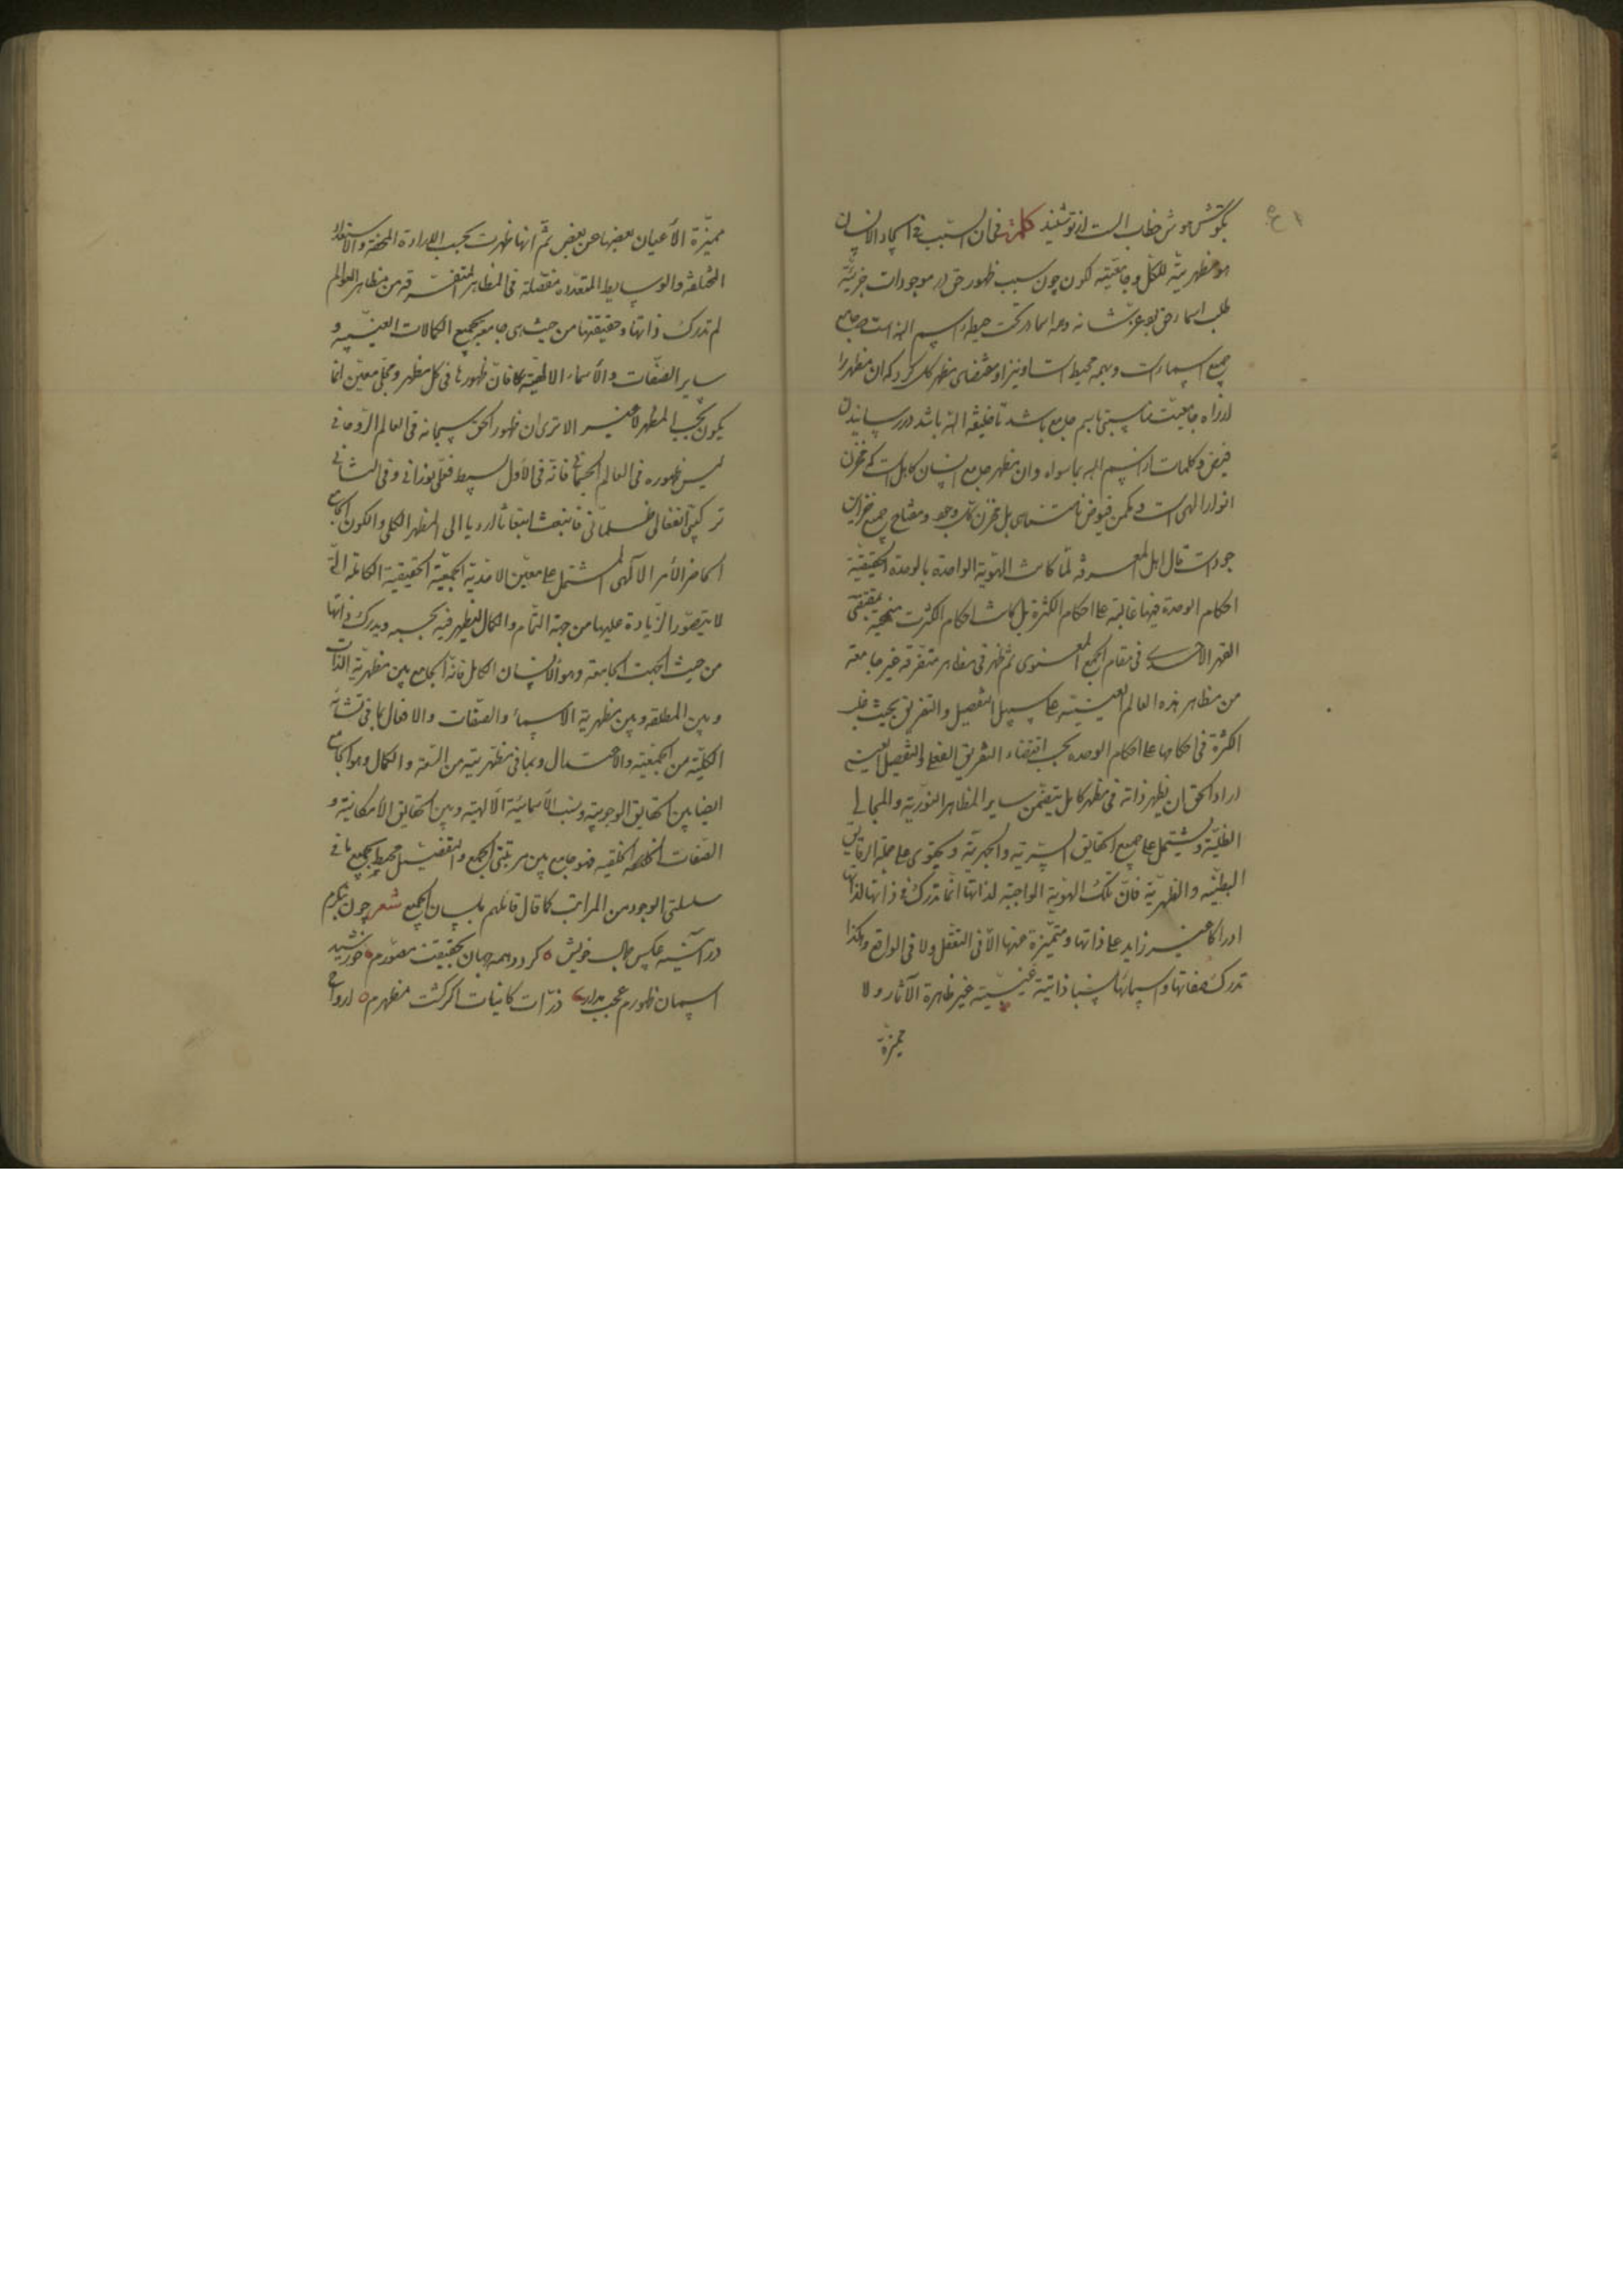 بگوشش هوش خطاب الست از تو شنید کلمة فی ان السبب فی ایجاد الانسان
هو مظهریته للکل و جامعیته لکون چون سبب ظهور حق در موجودات جزئیه
طلب اسماء حق بود عز شانه و همه اسما در تحت حیطه اسم الله است و جامع
جمیع اسماء است و بهمه محیط است او نیز اقتضای مظهر کلی کرد که ان مظهر را
از راه جامعیت مناسبتی باسم جامع باشد تا خلیفه الله باشد در رسانیدن
فیض و کلمات از اسم الله بماسواه و ان مظهر جامع انسان کامل است که مخزن
انوار الهی است و مکمن فیوض نامتناهی بل مخزن کل وجود و مفتاح جمیع خزاین
جود است قال اهل المعرفه لما کانت الهویة الواحدة بالوحدة الحقیقیة
احکام الوحدة فیها غالبة علی احکام الکثرة بل کانت احکام الکثرت منمحیة بمقتضی
القهر الاحدی فی مقام الجمع المعنوی ثم ظهر فی مظاهر متفرقه غیر جامعة
من مظاهر هذه العالم العینیة علی سبیل التفصیل والتفریق بحیث غلب
الکثرة فی احکامها علی احکام الوحده بحسب اقتضاء التفریق الفعلی والتفصیل العینی
اراد الحق ان یظهر ذاته فی مظهر کامل یتضمن سایر المظاهر النوریة والمجالی
الظلیة ویشتمل علی جمیع الحقایق السریه والجهریة ویحتوی علی جملة الرقایق
البطنیه والظهریة فان تلک الهویة الواجبة لذاتها انما تدرک فی ذاتها لذاتها
ادراکا غیر زاید علی ذاتها ومتمیزة عنها الا فی التعقل ولا فی الواقع وهکذا
تدرک صفاتها واسمائها نسبا ذاتیة غیبیة غیر ظاهرة الآثار ولا
ممیزة
ممیزة الاعیان بعضها عن بعض ثم انها ظهرت بحسب الارادة المخصه والاستعدادات
المختلفة والوسایط المتعدده مفصلة فی المظاهر المتفرقة من مظاهر العوالم
لم تدرک ذاتها وحقیقتها من حیث هی جامعة لجمیع الکمالات العینیه و
سایر الصفات والاسماء الالهیة فان ظهورها فی کل مظهر ومجلی معین انما
یکون بحسب المظهر لا غیر الا تری ان ظهور الحق سبحانه فی العالم الروحانی
لیس ظهوره فی العالم الجسمانی فانه فی الاول بسیط فعلی نورانی وفی الثانی
ترکیبی انفعالی ظلمانی فانبعث انبعاثا ارادیا الی المظهر الکلی والکون الجامع
الحاصر الامر الالهی المشتمل علی معنی الاحدیة الجمعیة الحقیقیة الکاملة التی
لا یتصور الزیادة علیها من جهة التمام والکمال لیظهر فیه بحسبه ویدرک ذاتها
من حیث الجهة الجامعة وهو الانسان الکامل فانه الجامع بین مظهریة الذات
وبین المطلقه وبین مظهریة الاسماء والصفات والافعال بما فی نشأته
الکلیة من الجمعیة والاعتدال وبما فی مظهریته من السعة والکمال وهو الجامع
ایضا بین الحقایق الوجوبیة ونسب الاسمائیة الالهیة وبین الحقایق الامکانیة و
الصفات الخلقیه فهو جامع بین مرتبتی الجمع والتفصیل محیط بجمیع ما فی
سلسلتی الوجود من المراتب کما قال قائلهم بلسان الجمع شعر چون بنگرم
در آئینه عکس جمال خویش ه کردد همه جهان بحقیقت مصورم ه خورشید
اسمان ظهورم عجب مدار ذرات کاینات اگر گشت مظهرم ه ارواح